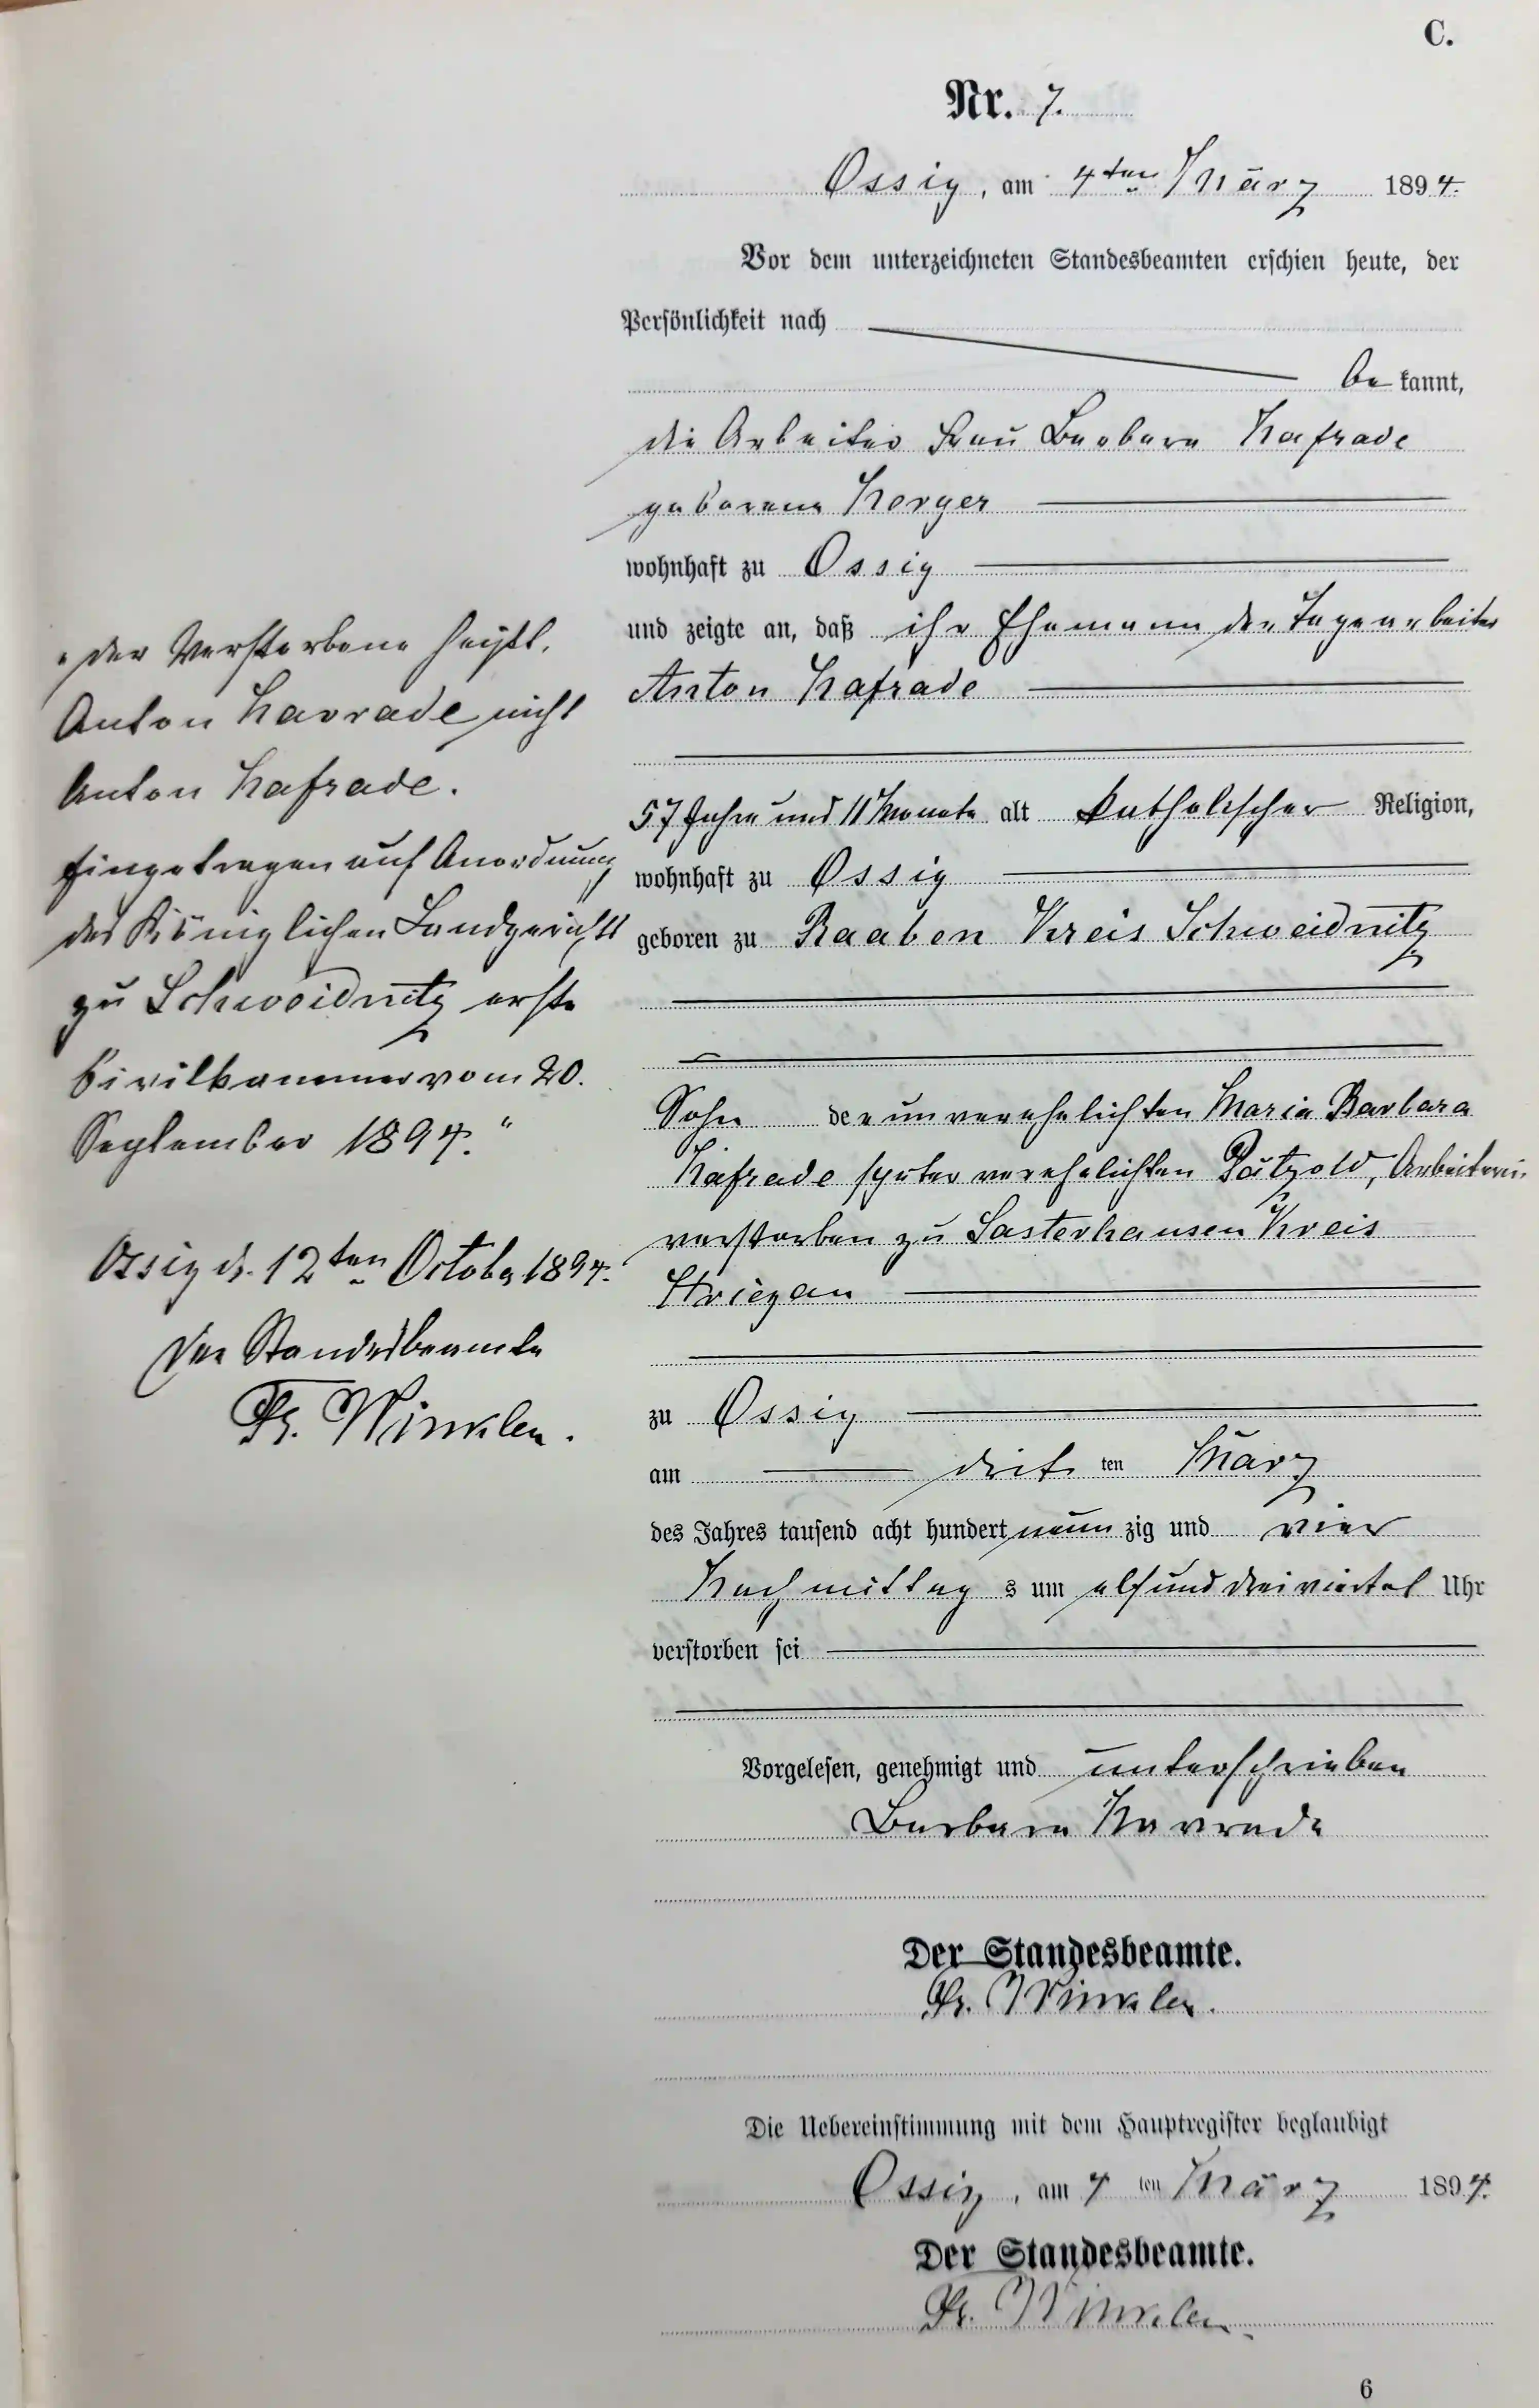 C.
Nr. 7.
Ossig, am 4ten März 1894.
Vor dem unterzeichneten Standesbeamten erschien heute, der
Persönlichkeit nach
bekannt,
die Arbeiter Frau Barbara Nafrade
geborene Herger
wohnhaft zu Ossig
und zeigte an, daß ihr Ehemann der Tagearbeiter
Anton Nafrade
57 Jahre und 11 Monate alt katholischer Religion,
wohnhaft zu Ossig
geboren zu Raaben Kreis Schweidnitz
Sohn der unverehelichten Maria Barbara
Nafrade später verehelichten Pätzold, Arbeiterin
verstorben zu Sasterhausen Kreis
Striegau
zu Ossig
am dritten März
des Jahres tausend acht hundert neunzig und vier
Nachmittags um elfunddreiviertel Uhr
verstorben sei
Vorgelesen, genehmigt und unterschrieben
Barbara Navrade
Der Standesbeamte.
Fr. Winkler.
Die Uebereinstimmung mit dem Hauptregister beglaubigt
Ossig, am 4ten März 1894.
Der Standesbeamte.
Fr. Winkler
6
"der Verstorbene heißt,
Anton Navrade nicht
Anton Nafrade.
Eingetragen auf Anordnung
des Königlichen Landgerichts
zu Schweidnitz erste
Civilkammer vom 20.
September 1894."
Ossig d. 12ten October 1894.
Der Standesbeamte
Fr. Winkler.